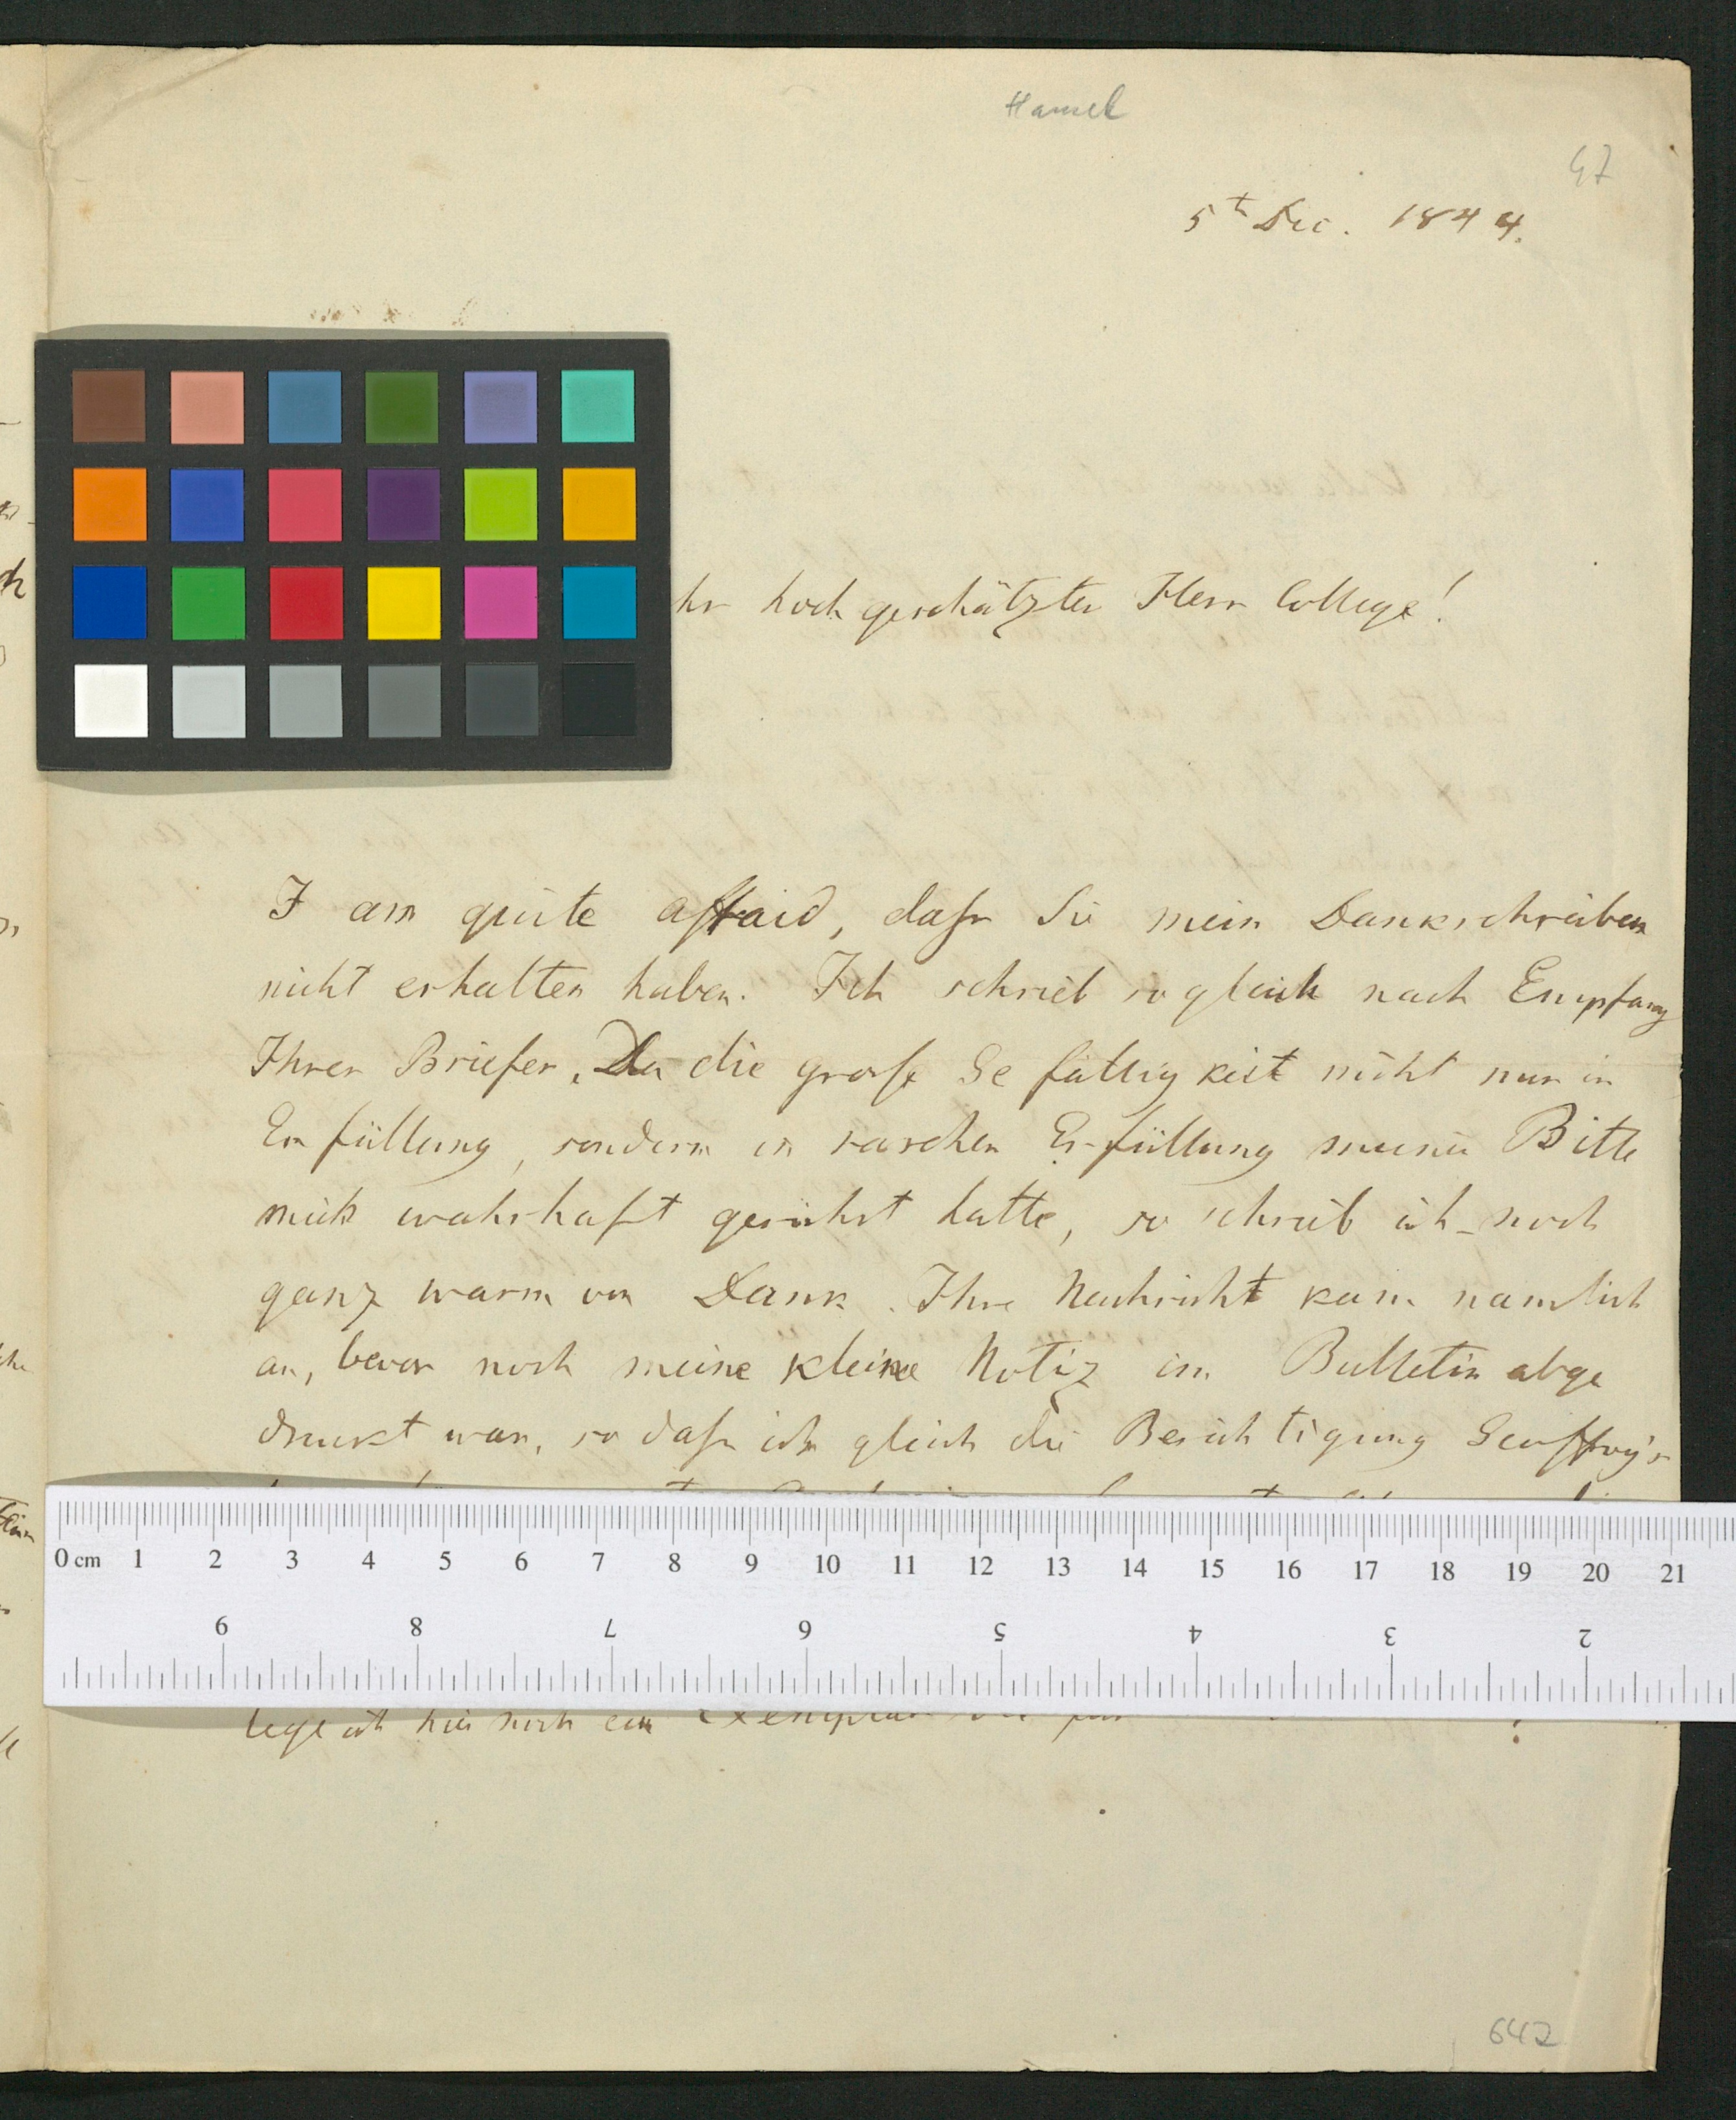 Hamel
47
5th Dec. 1844.
hr hoch geschätzter Herr College!
I am quite affraid, dafs Sie mein Dankschreiben
nicht erhalten haben. Ich schrieb sogleich nach Empfang
Ihres Briefes. Da die grofse Gefälligkeit nicht nur in
Erfüllung, sondern in rascher Erfüllung meiner Bitte
mich wahrhaft gerührt hatte, so schrieb ich noch
ganz warm von Dank. Ihre Nachricht kam nämlich
an, bevor noch meine kleine Notiz im Bulletin abge
druckt war, so dafs ich gleich die Berichtigung Geoffroy's
0 cm 1 2 3 4 5 6 7 8 9 10 11 12 13 14 15 16 17 18 19 20 21
9 8 7 6 5 4 3 2
lege ich hier noch ein Exemplar
642